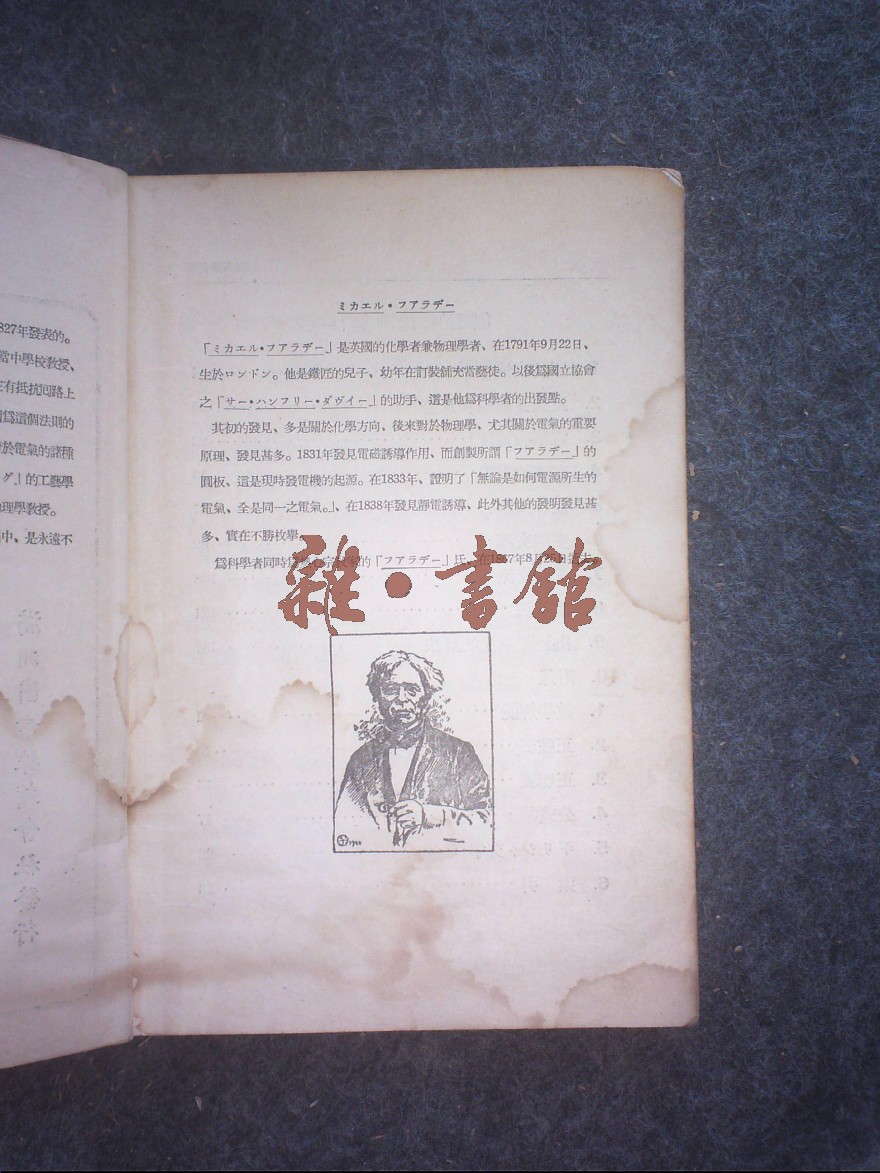 827年發表的。
當中學校教授、
在有抵抗回路上
爲這個法則的
於電氣的諸種
グ」的工藝學
物理學教授。
中、是永遠不
ミカエル・フアラデー
「ミカエル・フアラデー」是英國的化學者兼物理學者、在1791年9月22日、
生於ロンドン。他是鐵匠的兒子、幼年在訂裝舖充當藝徒。以後爲國立協會
之「サー・ハンフリー・ダヴイー」的助手、這是他爲科學者的出發點。
其初的發見、多是關於化學方向、後來對於物理學、尤其關於電氣的重要
原理、發見甚多。1831年發見電磁誘導作用、而創製所謂「フアラデー」的
圓板、這是現時發電機的起源。在1833年、證明了「無論是如何電源所生的
電氣、全是同一之電氣。」、在1838年發見靜電誘導、此外其他的發明發見甚
多、實在不勝枚舉。
爲科學者同時爲 宗教家的「フアラデー」氏、在1867年8月25日
雜・書館